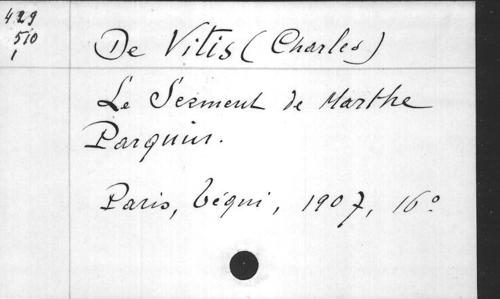 429
510
1
De Vitis (Charles)
Le Serment de Marthe
Parquin.
Paris, Téqui, 1907, 16°